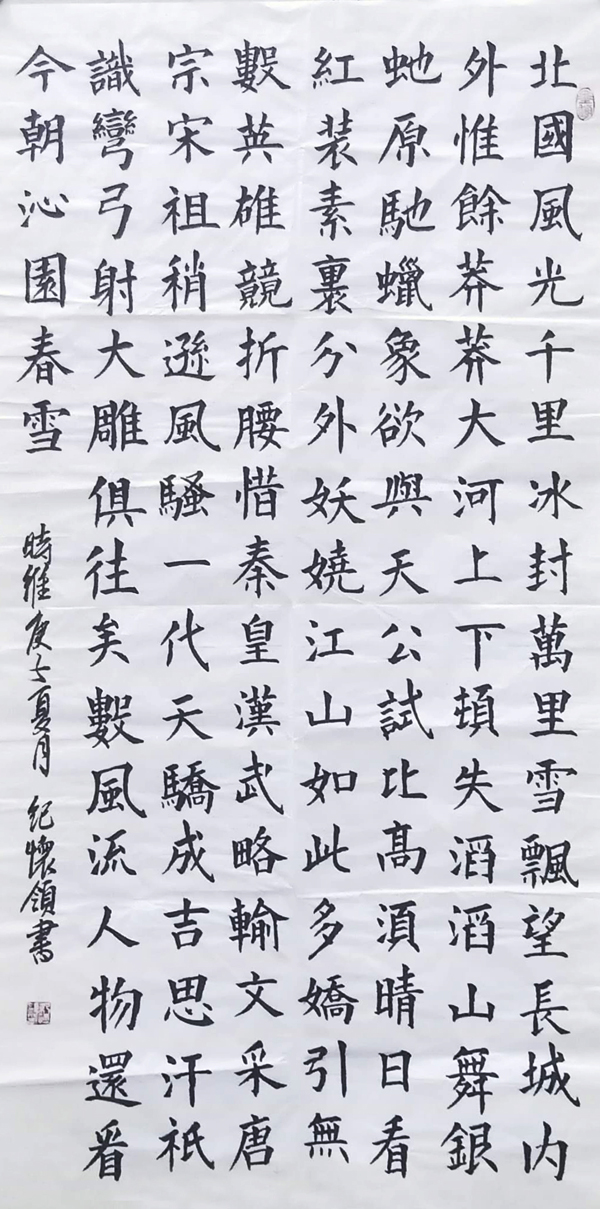 北國風光千里冰封萬里雪飄望長城內
外惟餘莽莽大河上下頓失滔滔山舞銀
虵原馳蠟象欲與天公試比高須晴日看
紅装素裹分外妖嬈江山如此多嬌引無
數英雄競折腰惜秦皇漢武略輸文采唐
宗宋祖稍遜風騷一代天驕成吉思汗祇
識彎弓射大雕俱往矣數風流人物還看
今朝沁園春雪
時維庚子夏月 紀懷領書